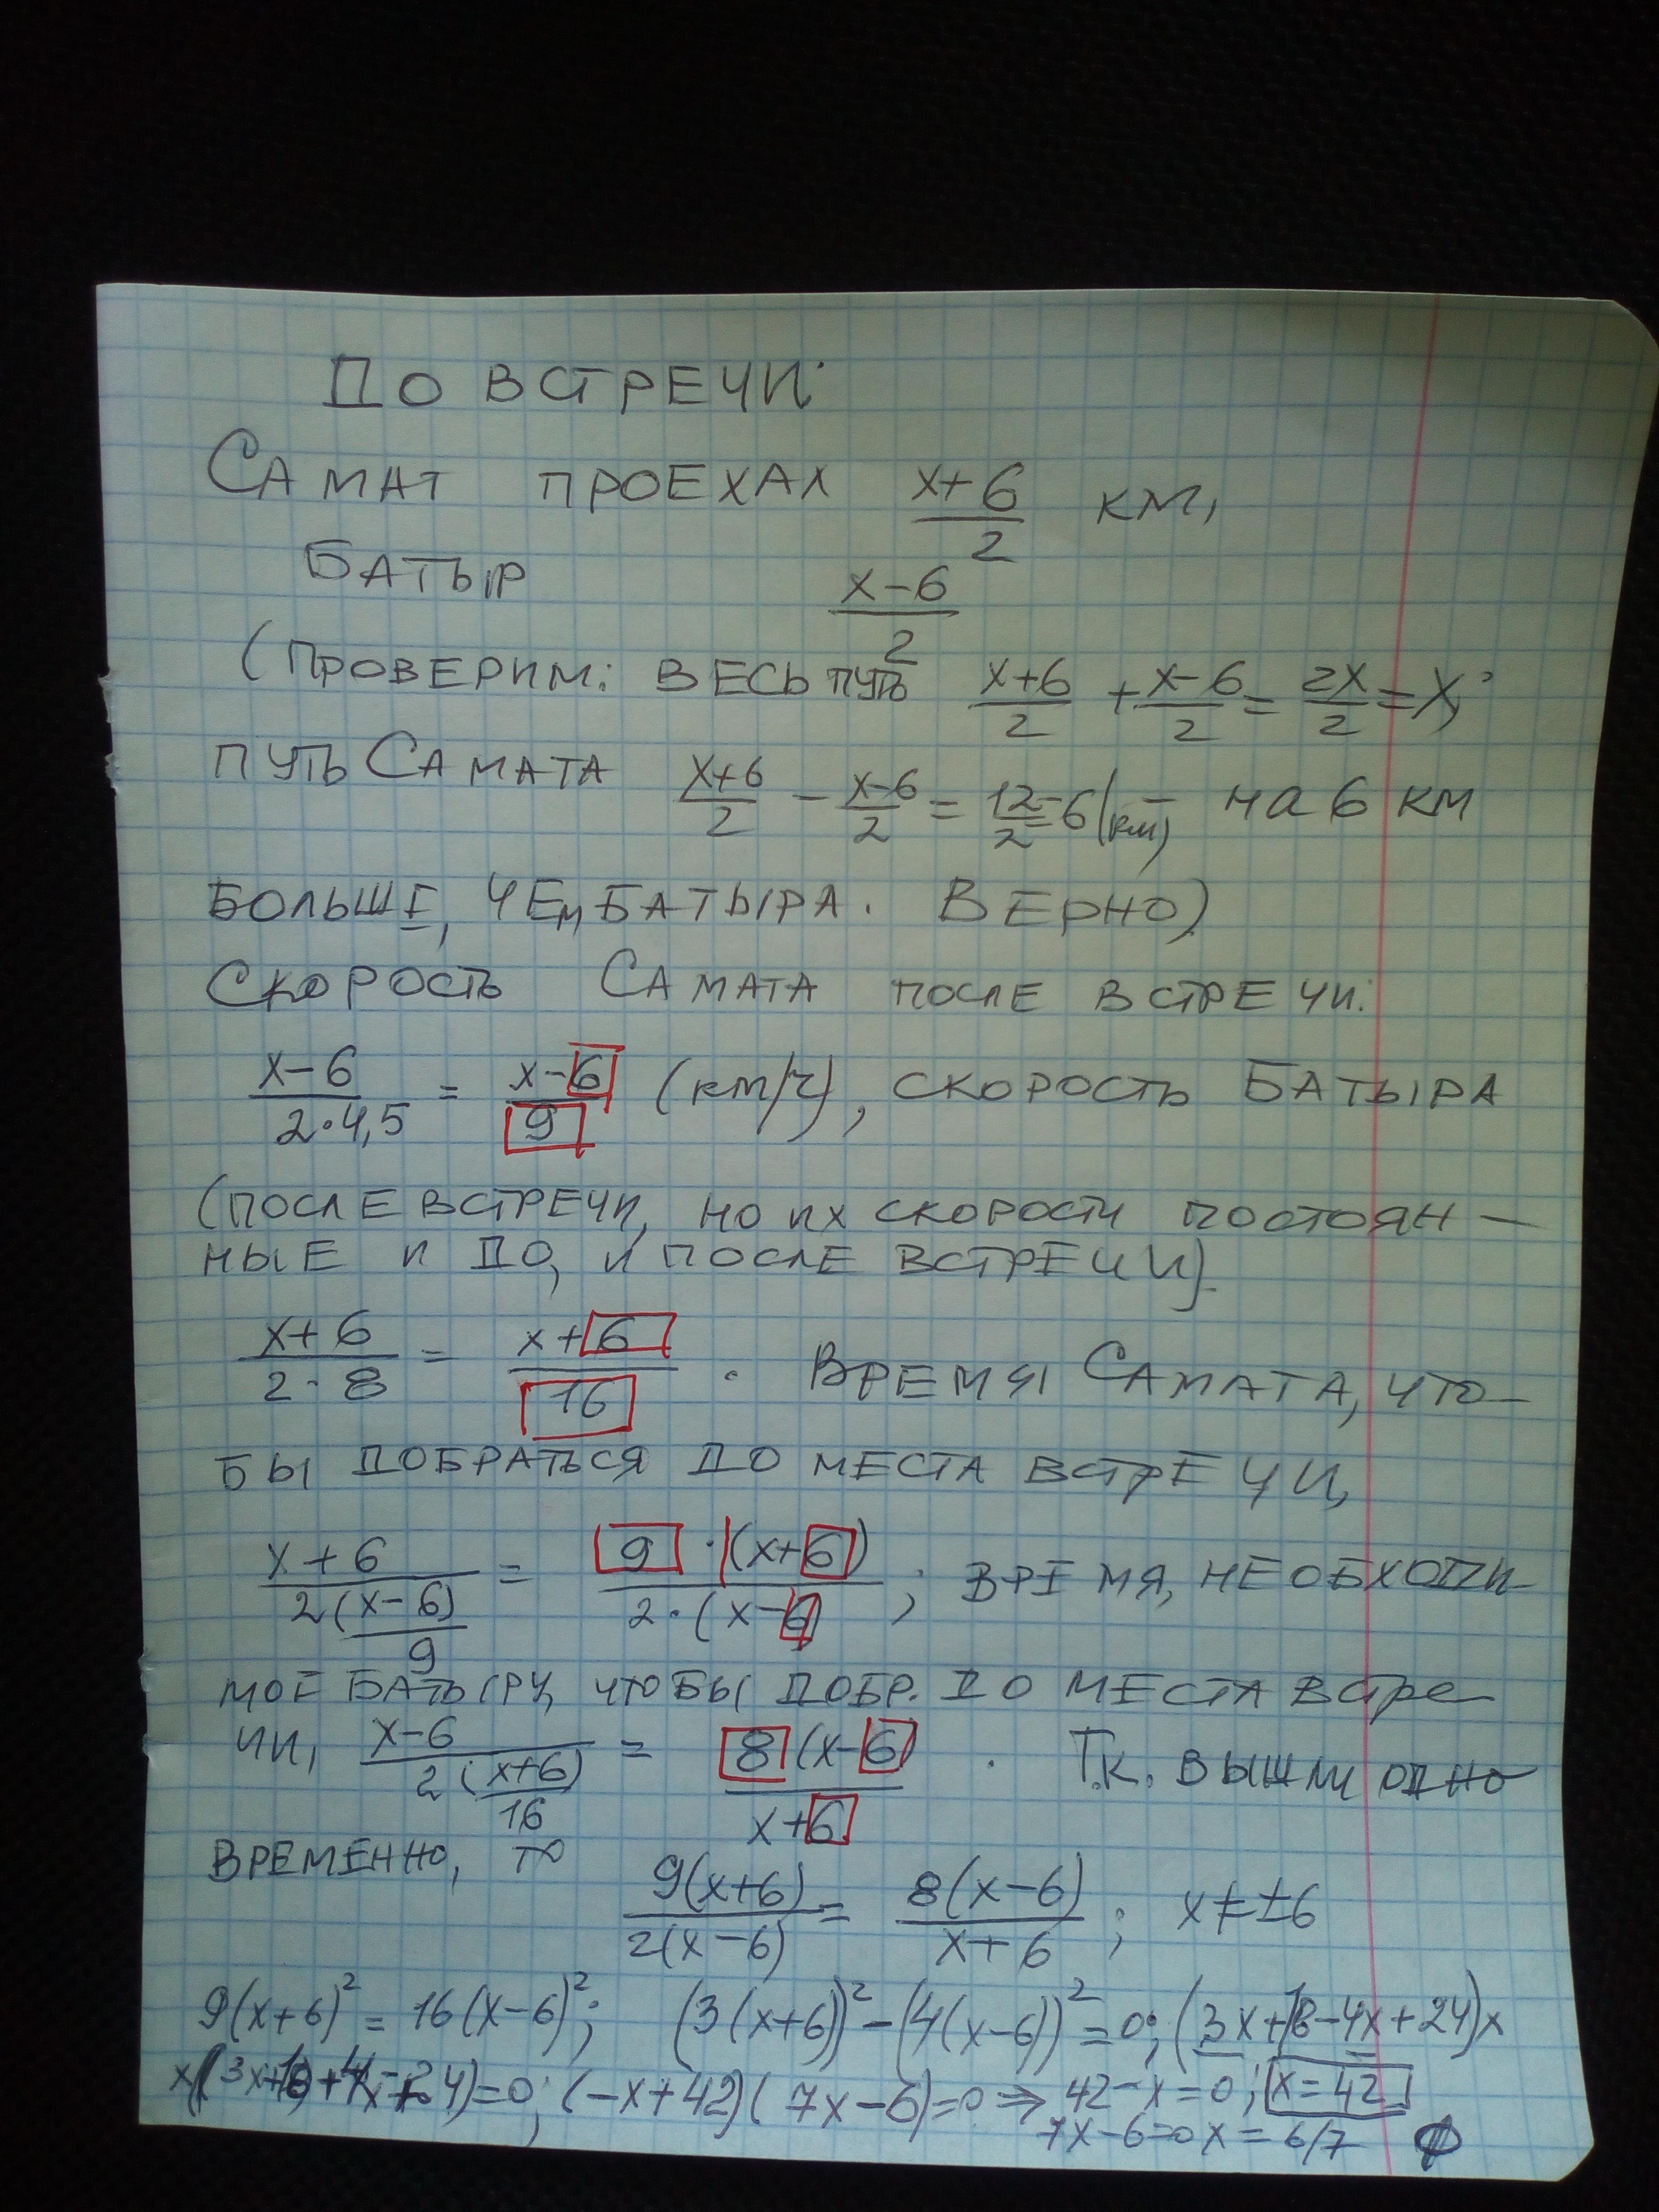 ДО ВСТРЕЧИ:
САМАТ ПРОЕХАЛ (x+6)/2 КМ,
БАТЫР (x-6)/2
(ПРОВЕРИМ: ВЕСЬ ПУТЬ (x+6)/2 + (x-6)/2 = 2x/2 = x;
ПУТЬ САМАТА (x+6)/2 - (x-6)/2 = 12/2 = 6 (км) - НА 6 КМ
БОЛЬШЕ, ЧЕМ БАТЫРА. ВЕРНО)
СКОРОСТЬ САМАТА ПОСЛЕ ВСТРЕЧИ:
(x-6)/(2·4,5) = (x-6)/9 (КМ/Ч), СКОРОСТЬ БАТЫРА
(ПОСЛЕ ВСТРЕЧИ, НО ИХ СКОРОСТИ ПОСТОЯН-
НЫЕ И ДО, И ПОСЛЕ ВСТРЕЧИ).
(x+6)/(2·8) = (x+6)/16 . ВРЕМЯ САМАТА, ЧТО-
БЫ ДОБРАТЬСЯ ДО МЕСТА ВСТРЕЧИ,
(x+6)/(2(x-6)/9) = 9·(x+6)/(2·(x-6)) ; ВРЕМЯ, НЕОБХОДИ
МОЕ БАТЫРУ, ЧТОБЫ ДОБР. ДО МЕСТА ВСТРЕ
ЧИ, (x-6)/(2(x+6)/16) = 8(x-6)/(x+6) . Т.К. ВЫШЛИ ОДНО
ВРЕМЕННО, ТО 9(x+6)/(2(x-6)) = 8(x-6)/(x+6) ; x≠±6
9(x+6)² = 16(x-6)²; (3(x+6))² - (4(x-6))² = 0; (3x+18-4x+24)x
x(3x+18+4x-24)=0; (-x+42)(7x-6)=0 ⇒ 42-x=0; x=42
7x-6=0 x=6/7